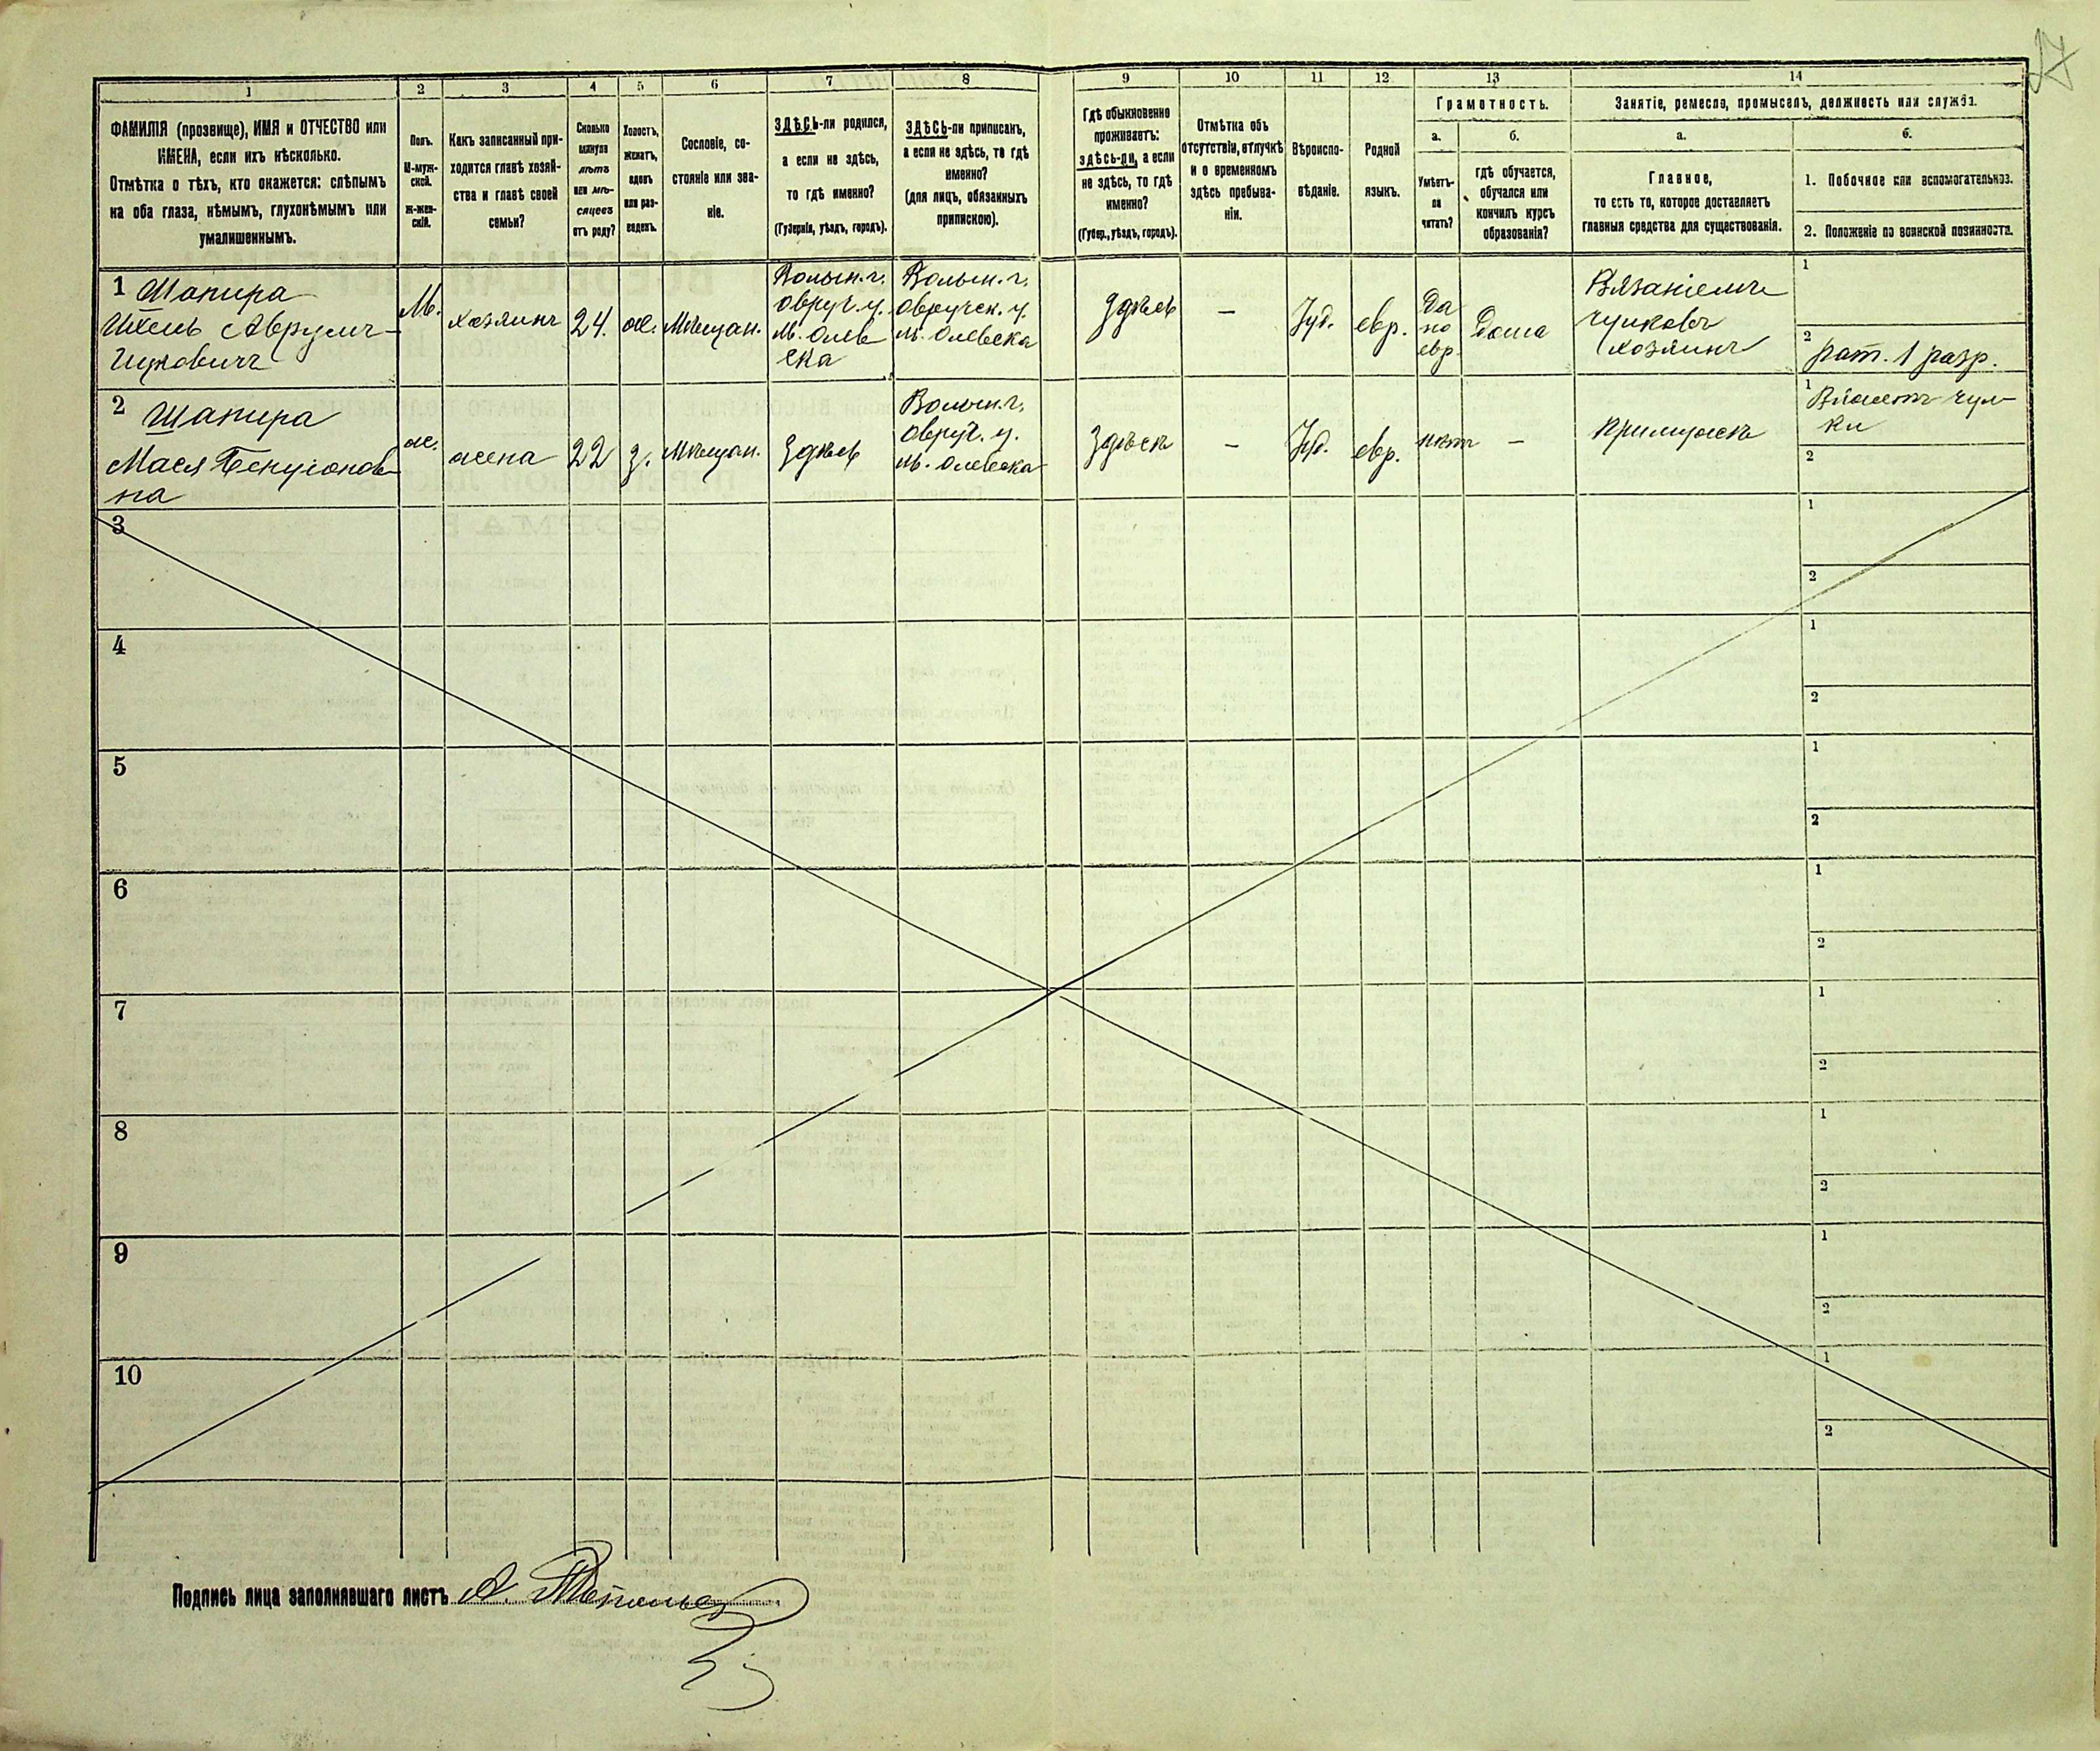 27
1
2
3
4
5
6
7
8
9
10
11
12
13
14
ФАМИЛІЯ (прозвище), ИМЯ и ОТЧЕСТВО или
ИМЕНА, если ихъ нѣсколько.
Отмѣтка о тѣхъ, кто окажется: слѣпымъ
на оба глаза, нѣмымъ, глухонѣмымъ или
умалишеннымъ.
Полъ.
М-муж-
ской.
Ж-жен-
скій.
Какъ записанный при-
ходится главѣ хозяй-
ства и главѣ своей
семьи?
Сколько
минуло
лѣтъ
или мѣ-
сяцевъ
отъ роду?
Холостъ,
женатъ,
вдовъ
или раз-
веденъ.
Сословіе, со-
стояніе или зва-
ніе.
ЗДѢСЬ-ли родился,
а если не здѣсь,
то гдѣ именно?
(Губернія, уѣздъ, городъ).
ЗДѢСЬ-ли приписанъ,
а если не здѣсь, то гдѣ
именно?
(для лицъ, обязанныхъ
припискою).
Гдѣ обыкновенно
проживаетъ:
здѣсь-ли, а если
не здѣсь, то гдѣ
именно?
(Губер., уѣздъ, городъ).
Отмѣтка объ
отсутствіи, отлучкѣ
и о временномъ
здѣсь пребыва-
ніи.
Вѣроиспо-
вѣданіе.
Родной
языкъ.
Грамотность.
а.
Умѣетъ-
ли
читать?
б.
гдѣ обучается,
обучался или
кончилъ курсъ
образованія?
Занятіе, ремесло, промыселъ, должность или служба.
а.
Главное,
то есть то, которое доставляетъ
главныя средства для существованія.
б.
1. Побочное или вспомогательное.
2. Положеніе по воинской повинности.
1 Шапира
Ихель Аврумъ-
Ицковичъ
М.
хозяинъ
24.
ж.
Мѣщан.
Волын. г.
Овруч. у.
м. Олев
ска
Волын. г.
Овручск. у.
м. Олевска
Здѣсь
—
Іуд.
евр.
Да
по
евр.
Дома
Вязаніемъ
чулковъ
хозяинъ
1
2
рат. 1 разр.
2 Шапира
Мася Бенціонов-
на
ж.
жена
22
з.
Мѣщан.
Здѣсь
Волын. г.
Овруч. у.
м. Олевска
Здѣсь
—
Іуд.
евр.
нѣтъ
—
При мужѣ
1
Вяжетъ чул-
ки
2
3
1
2
4
1
2
5
1
2
6
1
2
7
1
2
8
1
2
9
1
2
10
1
2
Подпись лица заполнявшаго листъ